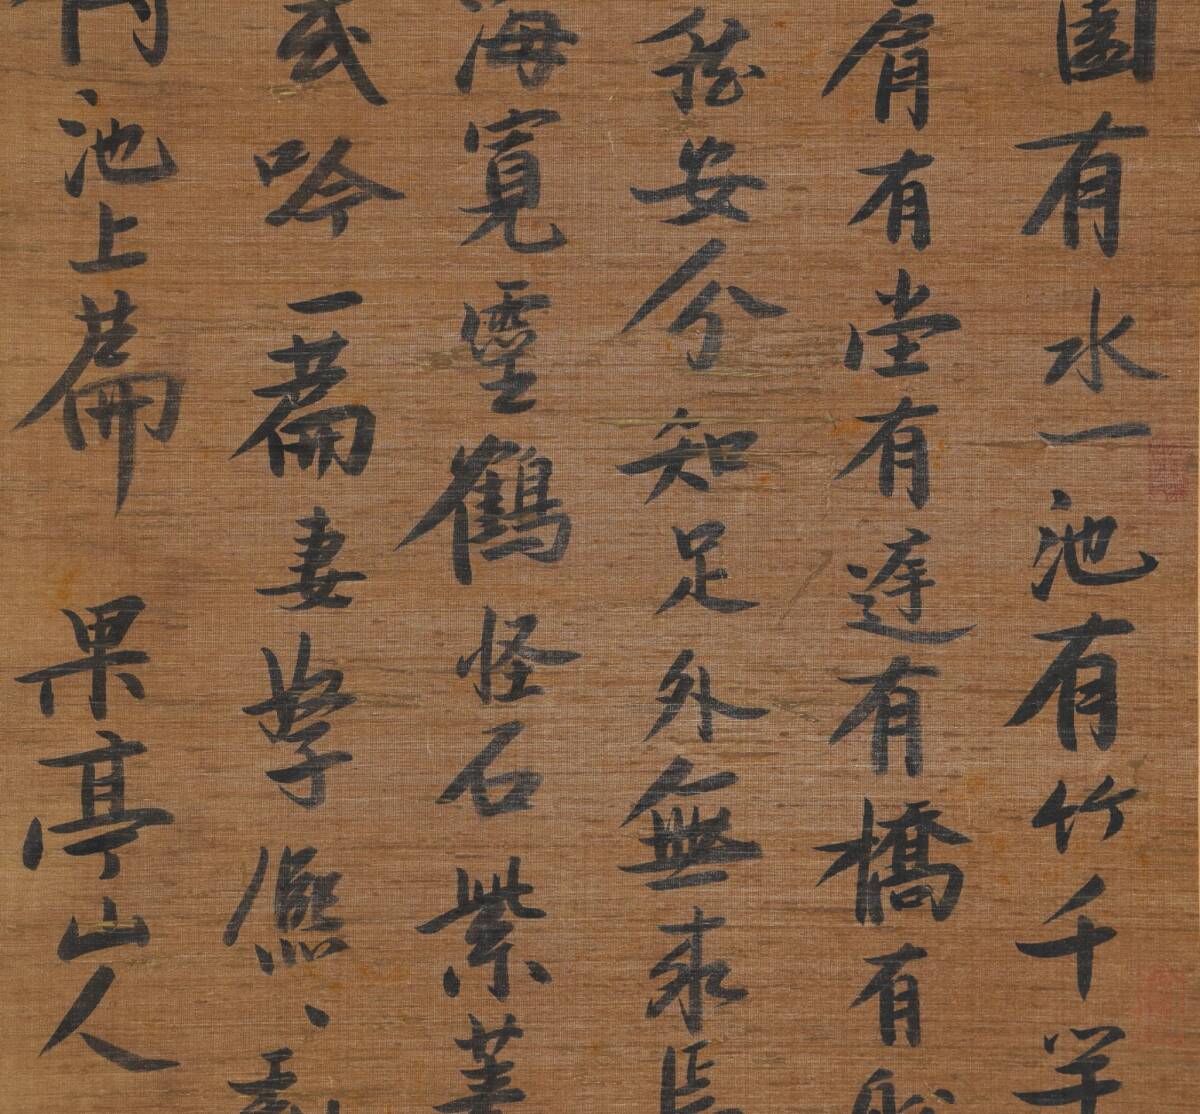 園有水一池有竹千竿
肩有堂有庭有橋有船
然安分知足外無求焉
海寬靈鶴怪石紫菱
或吟一篇妻孥熙、
池上篇 果亭山人